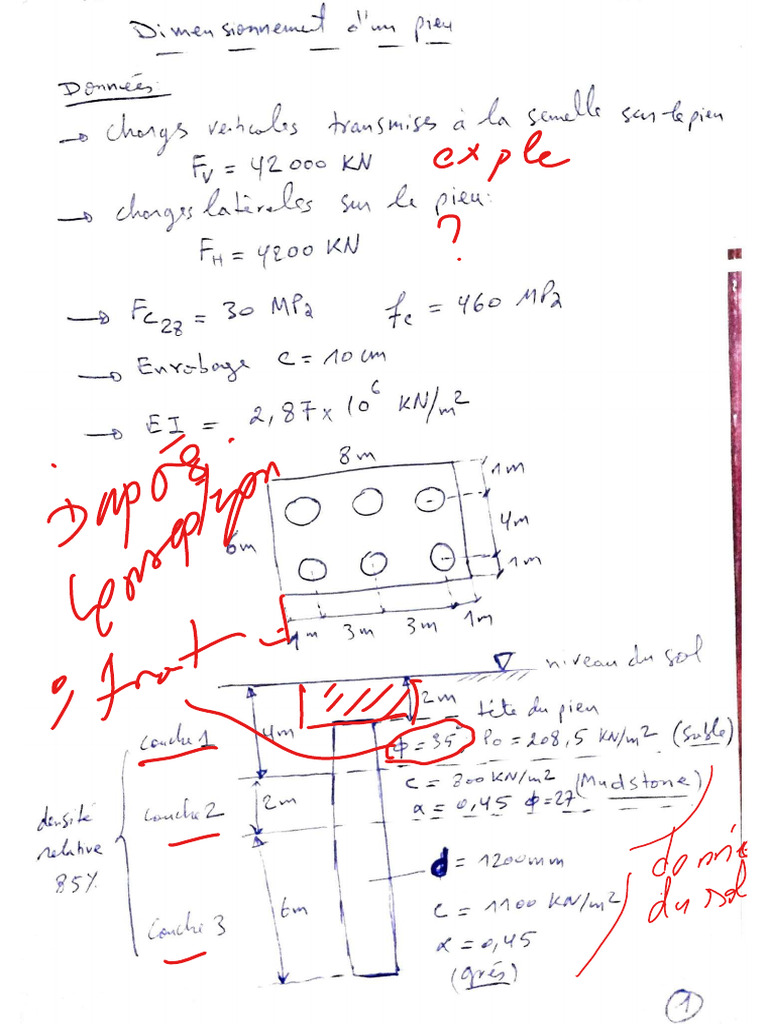 Dimensionnement d'un pieu
Données:
→ charges verticales transmises à la semelle sur le pieu
F_V = 42 000 KN exple
→ charges latèrales sur le pieu:
F_H = 4200 KN ?
→ F_C28 = 30 MPa fe = 460 MPa
→ Enrobage c = 10 cm
→ EI = 2,87 x 10^6 KN/m²
8m
1m
4m
6m
1m
1m 3m 3m 1m
niveau du sol
2m
4m tête du pieu
Couche 1 ϕ = 35° Po = 208,5 KN/m² (Sable)
2m C = 800 KN/m² (Mudstone)
Couche 2 α = 0,45 ϕ = 27
densité
relative
85%
d = 1200mm
6m C = 1100 KN/m²
Couche 3 α = 0,45
(grés)
donnée
du sol
1